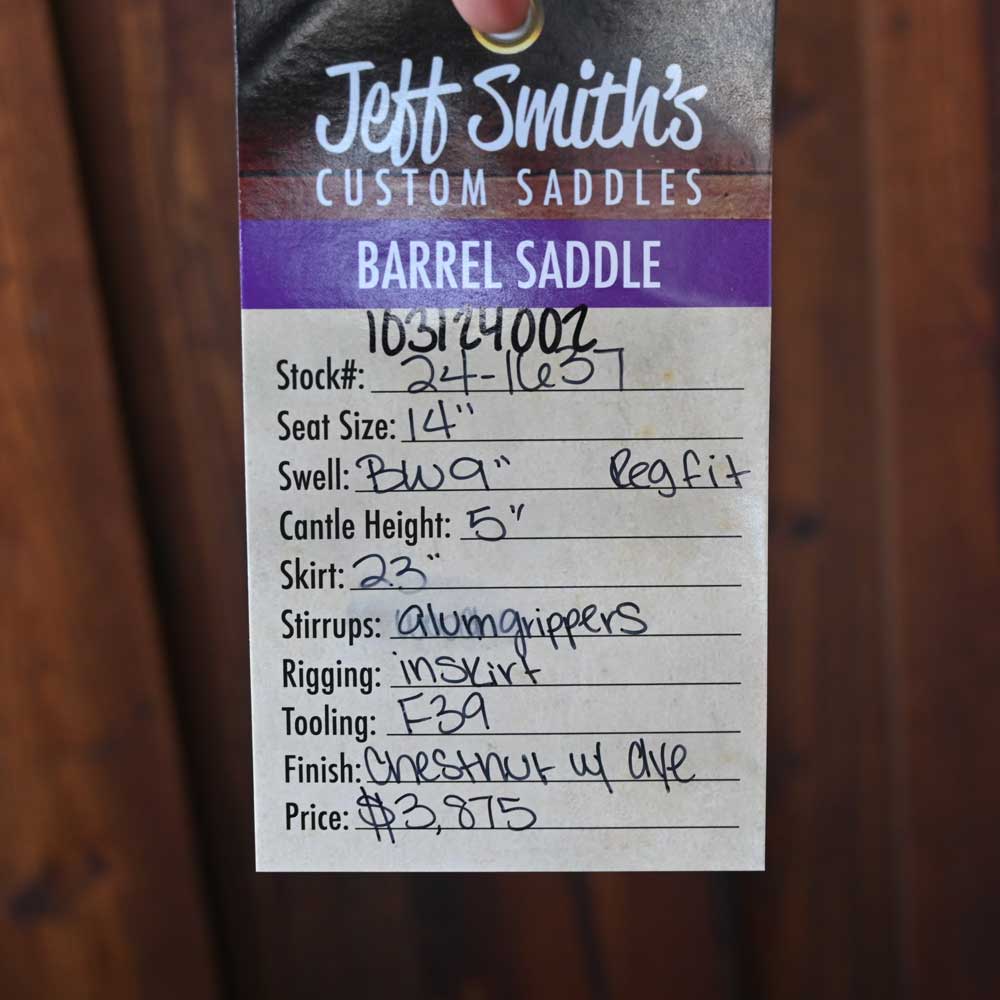 Jeff Smith's
CUSTOM SADDLES
BARREL SADDLE
103124002
Stock#: 24-1637
Seat Size: 14"
Swell: BW9" Reg fit
Cantle Height: 5"
Skirt: 23"
Stirrups: alumgrippers
Rigging: inskirt
Tooling: F39
Finish: Chestnut w/ dye
Price: $3,875